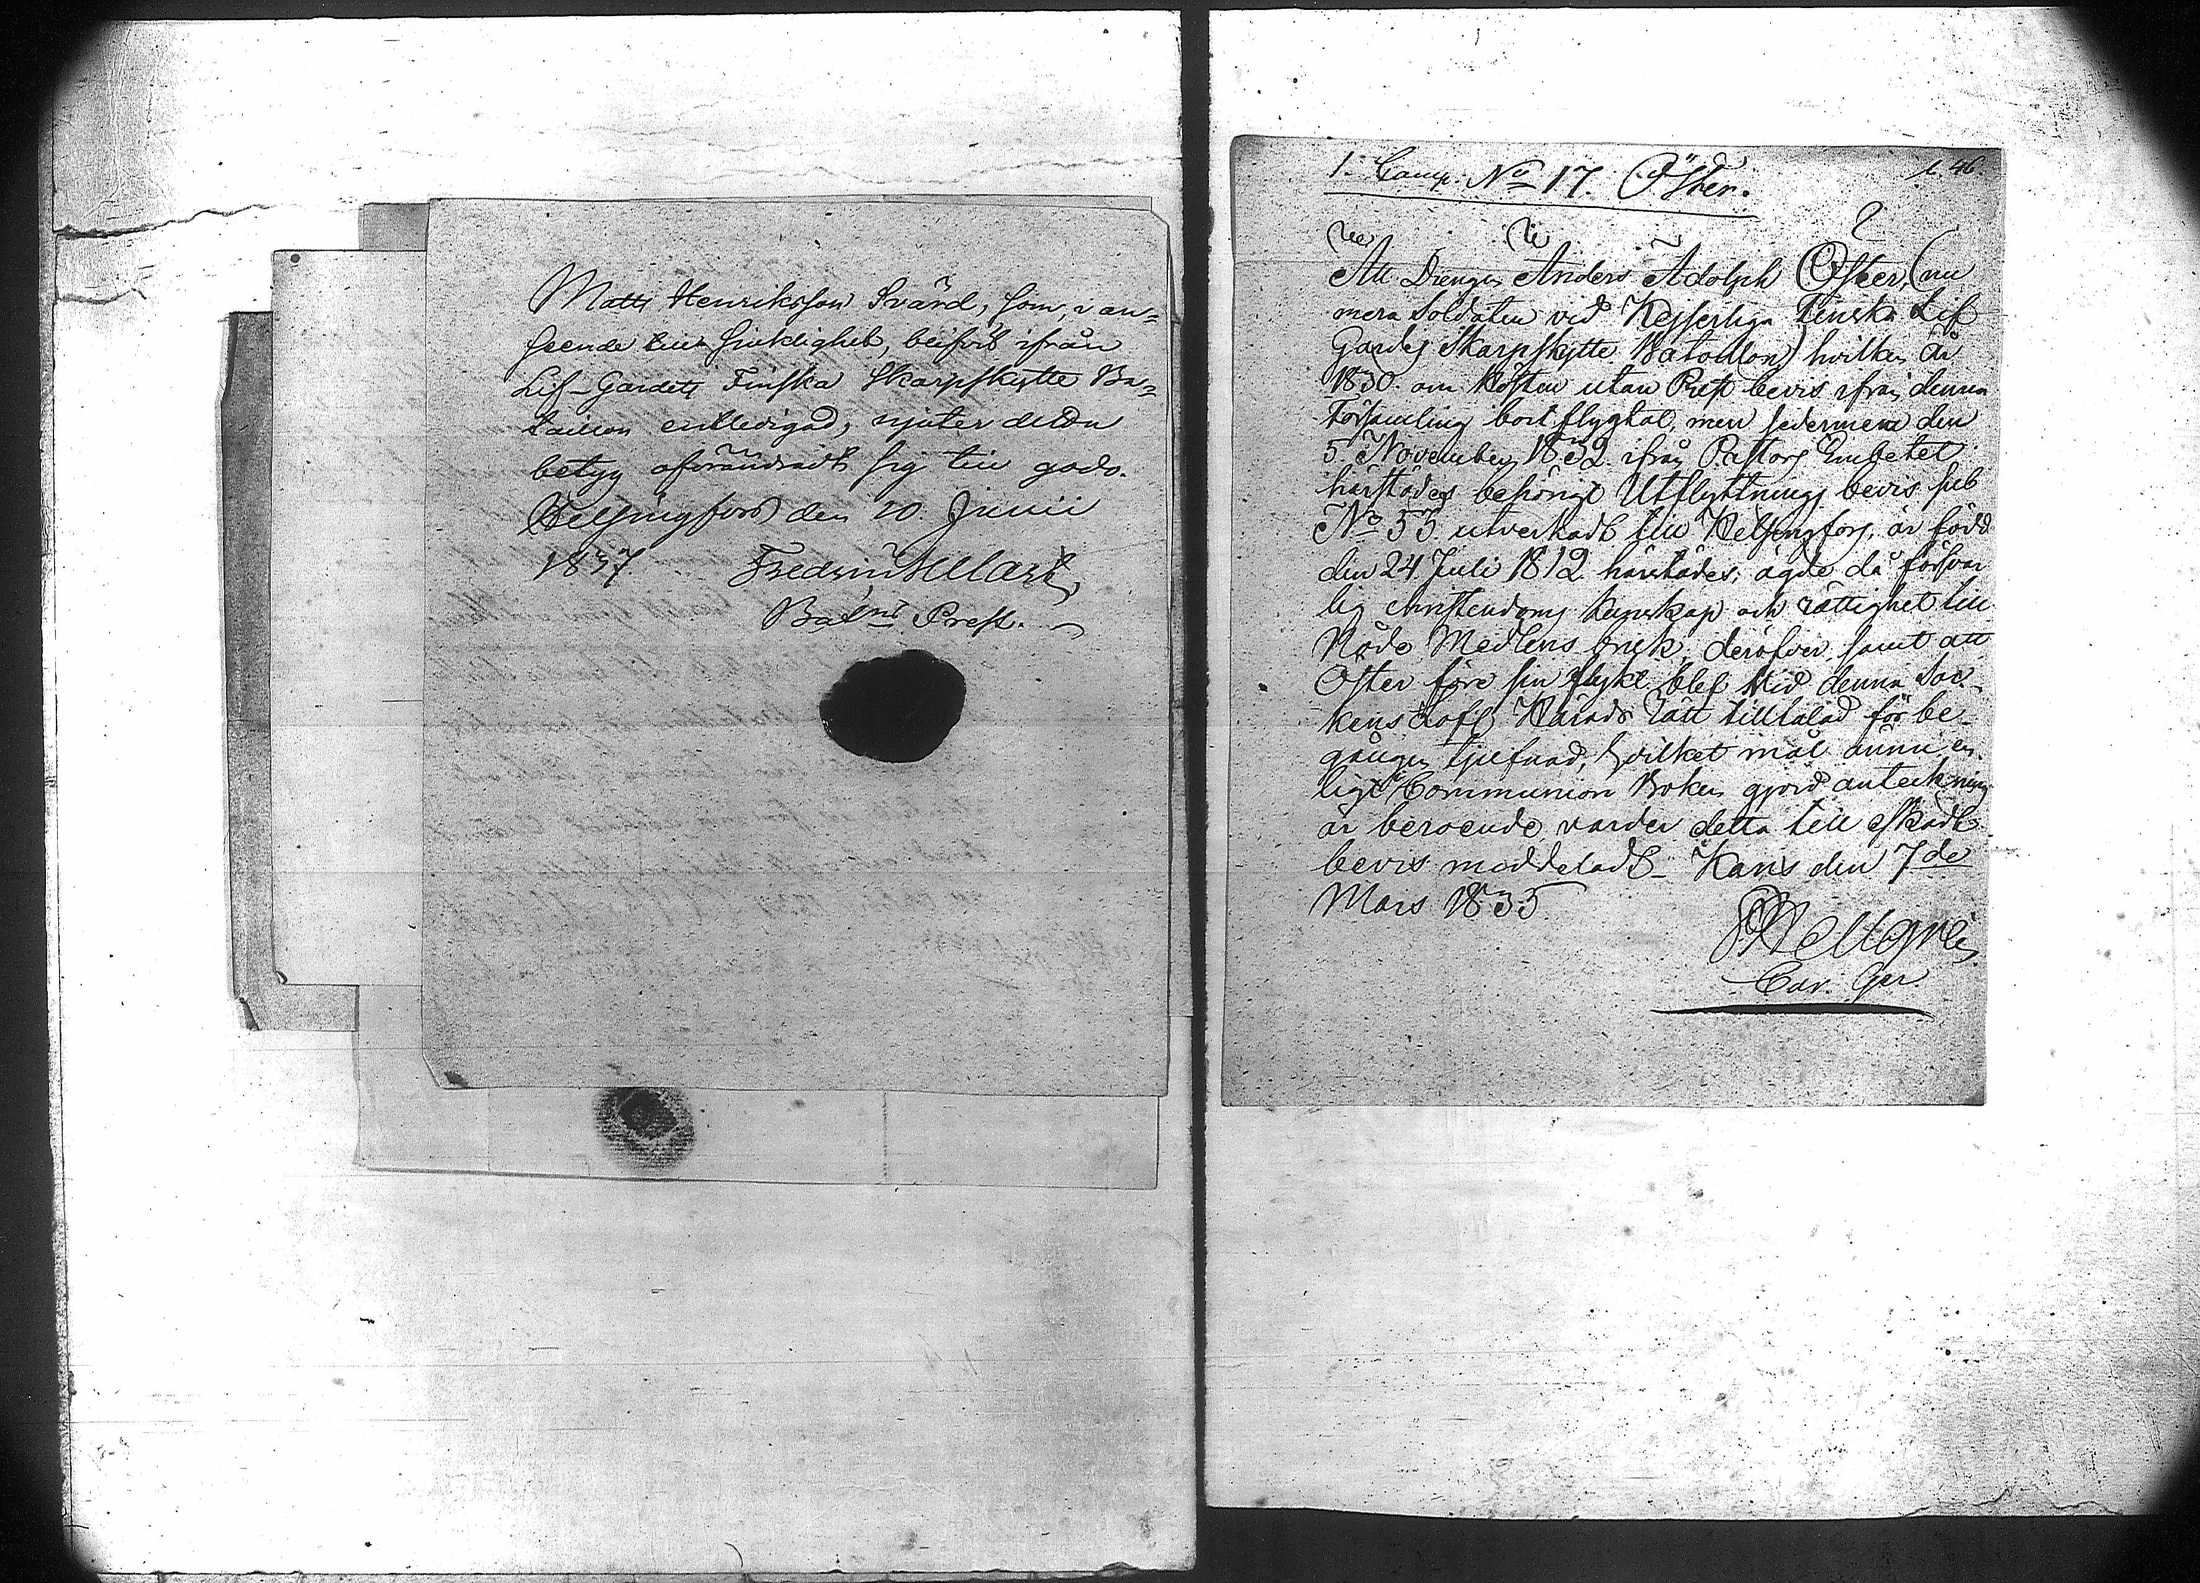 Matts Henriksson Svärd, som, i an-
seende till sjuklighet, blifvit ifrån
Lif-Gardets Finska Skarpskytte Ba-
taillon entledigad, njuter detta
betyg oförändradt sig till godo.
Helsingfors den 20. Junii
1837. Fredrik
Batns Prest.
1. Comp. No 17. Öster.
1. 46.
Att Drengen Anders Adolph Öster, (nu
mera Soldaten vid Kejserliga Finska Lif
Gardes Skarpskytte Bataillon) hvilken År
1830 om hösten utan Prest bevis ifrån denna
Församling bortflygtat, men sedermera den
5 November 1832 ifrån Pastors Embetet
härstädes behörigt Utflyttnings bevis sub
No 55. utverkadt till Helsingfors, är född
den 24 Juli 1812 härstädes, ägde då försvar
lig christendoms kunskap och rättighet till
Nåde Medlens bruk, deröfver samt att
Öster före sin flykt blef vid denna Soc-
kens Lofl. Härads Rätt tilltalad för be-
gången tjufnad, hvilket mål ännu en
ligt Communion Boken gjord anteckning
är beroende varder detta till äskadt
bevis meddeladt. Karis den 7de
Mars 1835